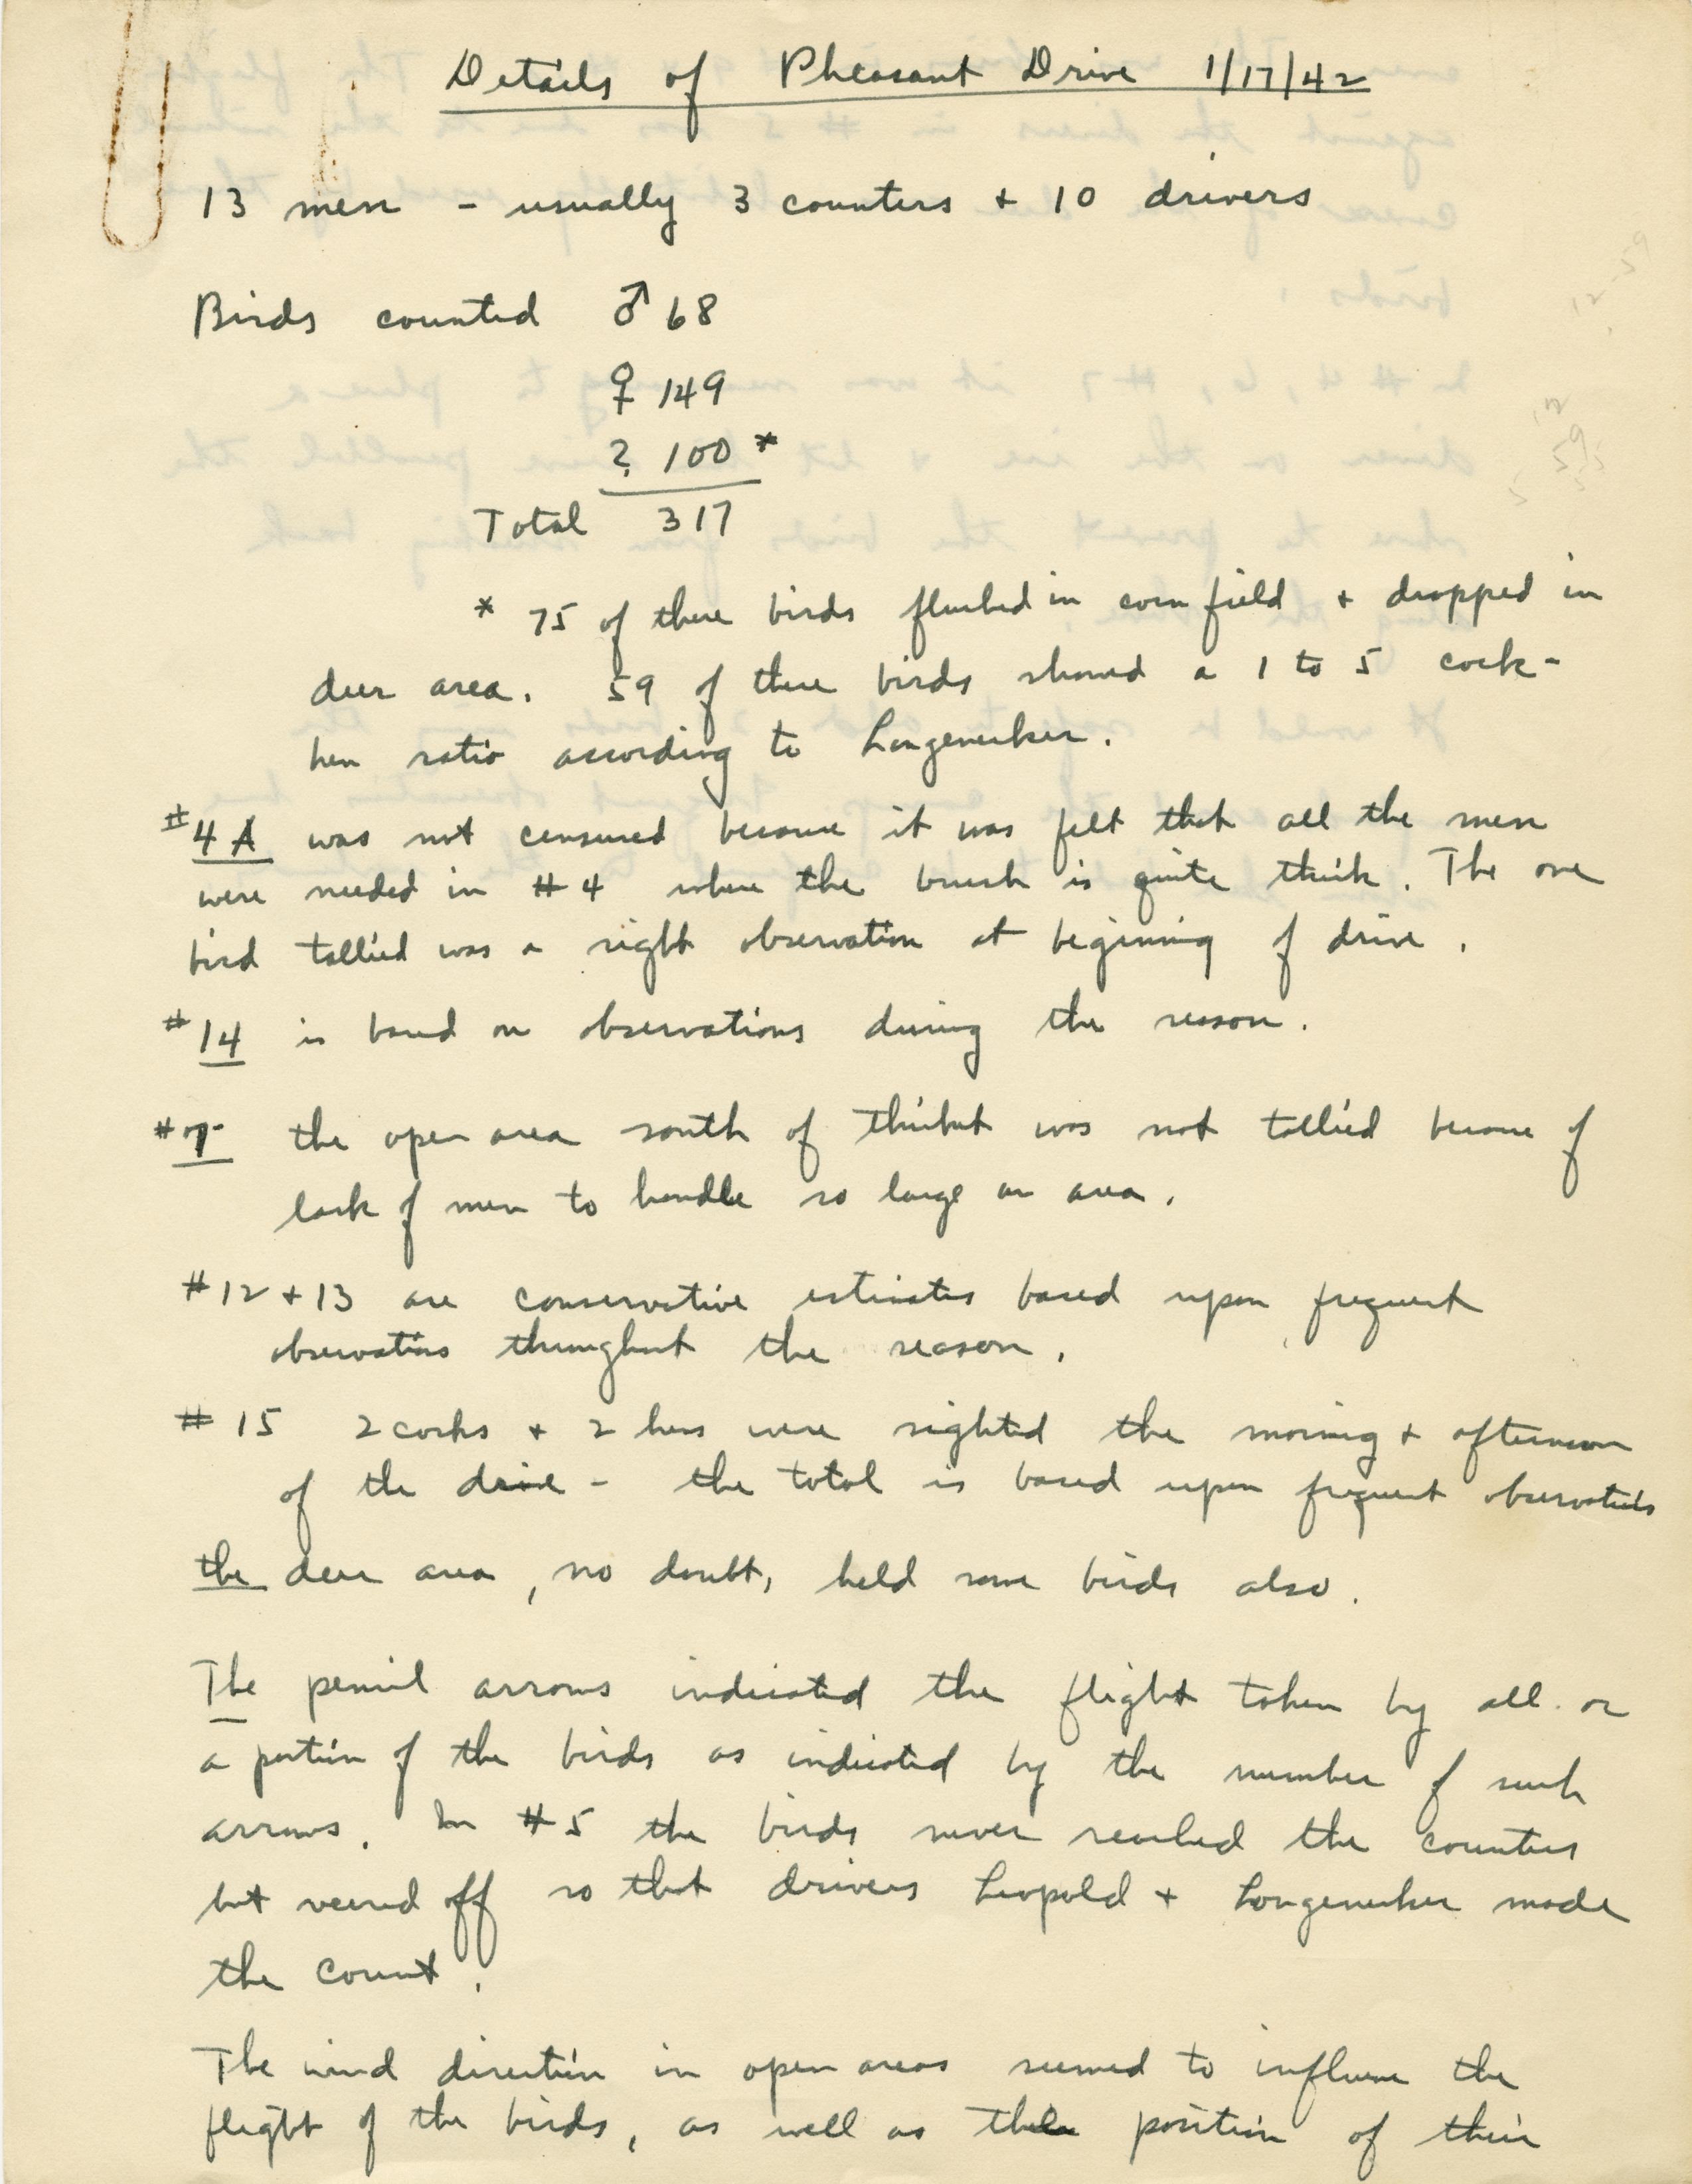 Details of Pheasant Drive 1/17/42
13 men - usually 3 counters + 10 drivers
Birds counted ♂ 68
♀ 149
? 100 *
Total 317
* 75 of these birds flushed in corn field + dropped in
deer area. 59 of these birds showed a 1 to 5 cock-
hen ratio according to Longenecker.
#4A was not censused because it was felt that all the men
were needed in #4 where the brush is quite thick. The one
bird tallied was a sight observation at beginning of drive.
#14 is based on observations during the season.
#7 the open area south of thicket was not tallied because of
lack of men to handle so large an area.
#12 + 13 are conservative estimates based upon frequent
observations throughout the season.
#15 2 cocks + 2 hens were sighted the morning + afternoon
of the drive - the total is based upon frequent observations
the deer area, no doubt, held some birds also.
The pencil arrows indicated the flight taken by all or
a portion of the birds as indicated by the number of such
arrows. In #5 the birds never reached the counters
but veered off so that drivers Leopold + Longenecker made
the count.
The wind direction in open areas seemed to influence the
flight of the birds, as well as the position of their